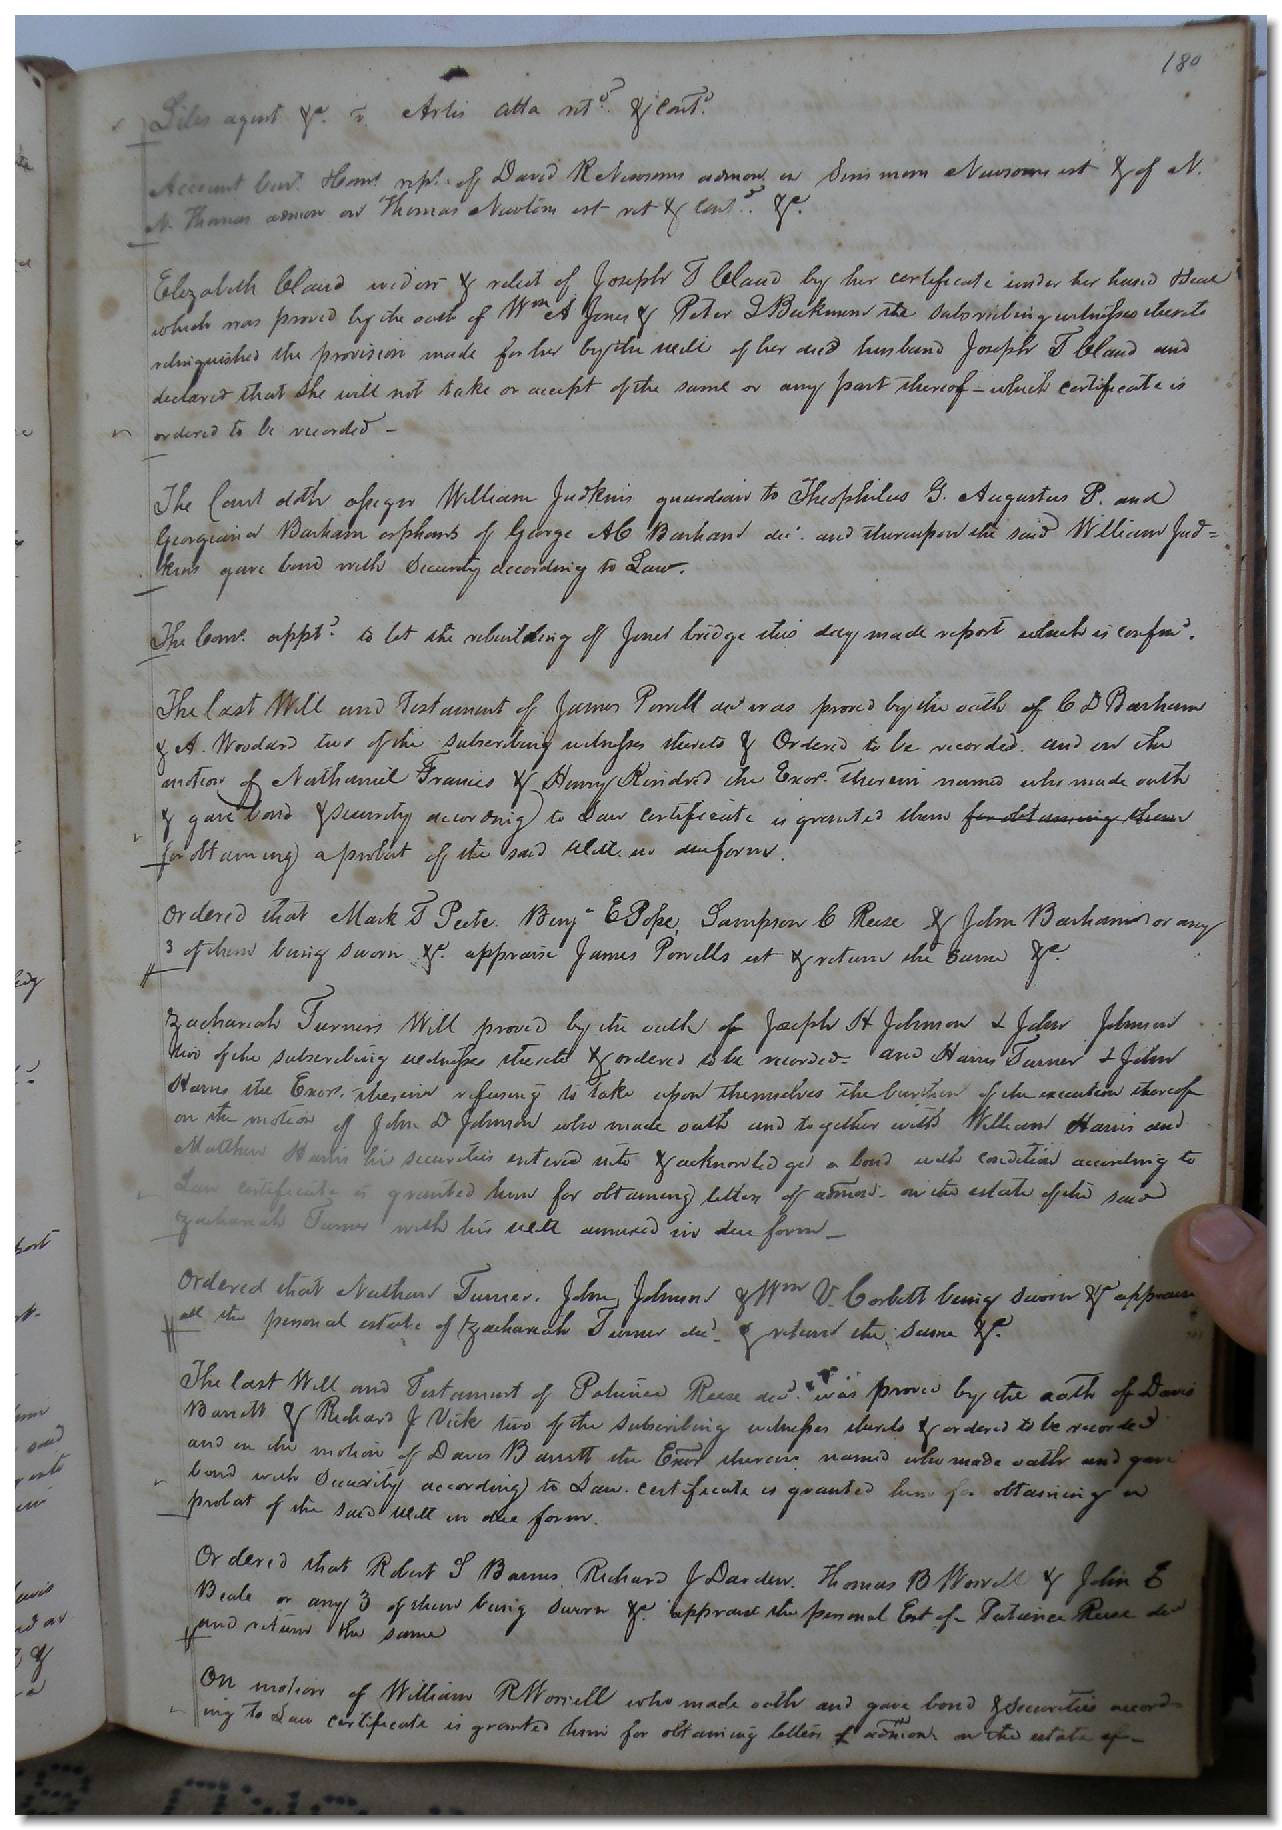 180
Liles agent &c. v. Artis atta retd. & contd.
Account Curt. Coms. rept. of David R Newsoms admon. on Sinsmom Newsoms est & of N.
N. Thomas admon on Thomas Newtons est ret & contd. &c.
Elizabeth Claud widow & relict of Joseph T Claud by her certificate under her hand & seal
which was proved by the oath of Wm A Jones & Peter J Beekman the subscribing witnesses thereto
relinquished the provision made for her by the will of her decd husband Joseph T Claud and
declared that she will not take or accept of the same or any part thereof - which certificate is
ordered to be recorded -
The Court doth assign William Judkins guardian to Theophilus G. Augustus P. and
Georgiana Barham orphans of George AC Barham dec. and thereupon the said William Jud=
kins gave bond with Security according to Law.
The Coms. apptd. to let the rebuilding of Jones bridge this day made report which is confmd.
The last Will and Testament of James Powell decd was proved by the oath of C D Barham
& A. Woodard two of the subscribing witnesses thereto & Ordered to be recorded. and on the
motion of Nathaniel Francis & Henry Kindred the Exors. therein named who made oath
& gave bond & security according to Law certificate is granted them for obtaining them
for obtaining a probat of the said Will in due form.
Ordered that Mark T Peete. Benja E Pope, Sampson C Reese & John Barham or any
3 of them being sworn &c. appraise James Powells est & return the same &c.
Zachariah Turners Will proved by the oath of Joseph H Johnson & John Johnson
two of the subscribing witnesses thereto & ordered to be recorded - and Harris Turner & John
Harris the Exors. therein refusing to take upon themselves the burthen of the execution thereof
on the motion of John D Johnson who made oath and together with William Harris and
Matthew Harris his securities entered into & acknowledged a bond with condition according to
Law certificate is granted him for obtaining letters of admon. on the estate of the said
Zachariah Turner with his will annexed in due form -
Ordered that Nathan Turner. John Johnson & Wm V. Corbett being sworn &c appraise
all the personal estate of Zachariah Turner decd. & return the same &c.
The last Will and Testament of Patience Reese decd. was proved by the oath of Davis
Barrett & Richard J Vick two of the subscribing witnesses thereto & ordered to be recorded
and on the motion of Davis Barrett the Exor therein named who made oath and gave
bond with Security according to Law. certificate is granted him for obtaining a
probat of the said will in due form.
Ordered that Robert S Barnes. Richard J Darden. Thomas B Worrell & John E
Beale or any 3 of them being sworn &c. appraise the personal Est of Patience Reese decd
and return the same
On motion of William R Worrell who made oath and gave bond & securities accord-
ing to Law certificate is granted him for obtaining letters of admon. on the estate of -